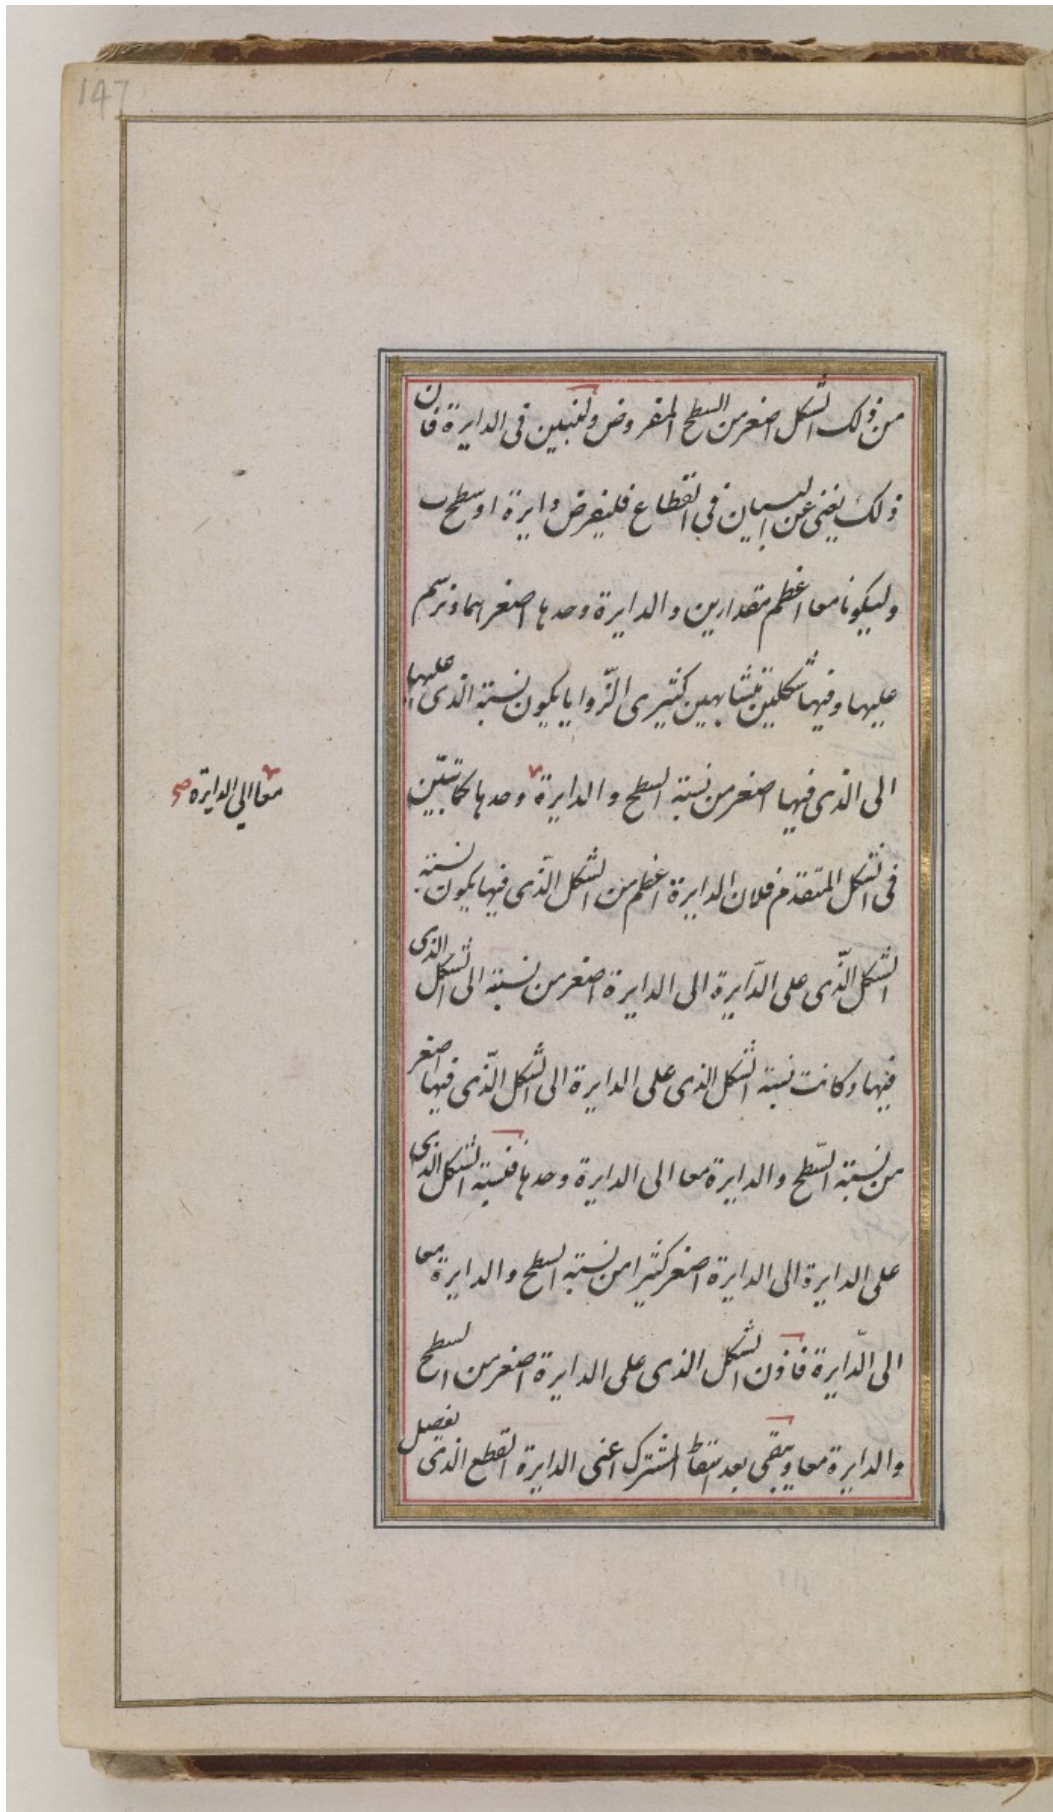 147
من ذلك الشكل اصغر من السطح المفروض ولنبين فى الدايرة فان
ذلك يغنى عن البيان فى القطاع فليفرض دايرة ا وسطح ب
وليكونا معا اعظم مقدارين والدايرة وحدها اصغرهما ونرسم
عليها وفيها شكلين متشابهين كثيرى الزّوايا يكون نسبة الذى عليها
الى الذى فيها اصغر من نسبة السطح والدايرة وحدها كما تبيّن
معا الى الدايرة صح
فى الشكل المتقدم فلان الدايرة اعظم من الشكل الّذى فيها يكون نسبة
الشكل الّذى على الدّايرة الى الدايرة اصغر من نسبته الى الشكل الذى
فيها وكانت نسبة الشكل الذى على الدايرة الى الشكل الّذى فيها اصغر
من نسبة السّطح والدايرة معا الى الدايرة وحدها فنسبة الشكل الذى
على الدايرة الى الدايرة اصغر كثيرا من نسبة السطح والدايرة معا
الى الدّايرة فاذن الشكل الذى على الدايرة اصغر من السطح
والدايرة معا ويبقى بعد اسقاط المشترك اعنى الدايرة القطع الذى يفصل